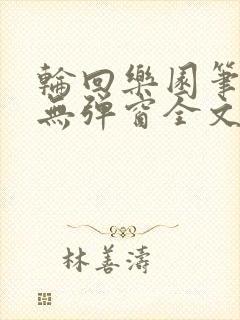 輪回樂園筆
無彈窗全文
林善濤